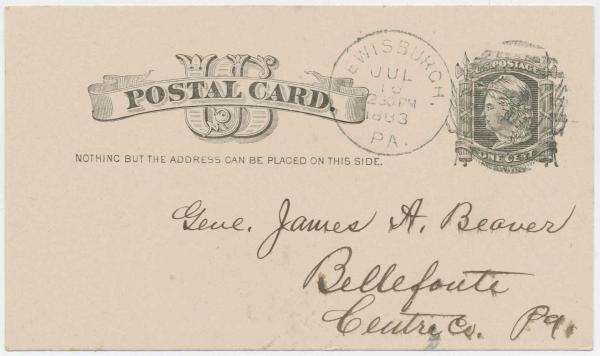 US
POSTAL CARD.
NOTHING BUT THE ADDRESS CAN BE PLACED ON THIS SIDE.
LEWISBURGH.
JUL
18
2 30 PM
1883
PA.
U.S. POSTAGE
ONE CENT
Genl. James A. Beaver
Bellefonte
Centre Co. Pa.